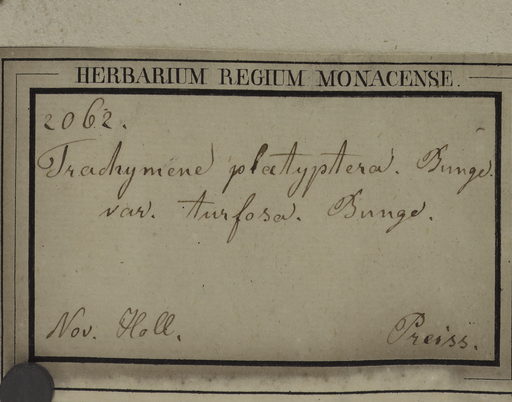 HERBARIUM REGIUM MONACENSE.
2062.
Trachymene platyptera. Bunge.
var. turfosa. Bunge.
Nov. Holl. Preiss.